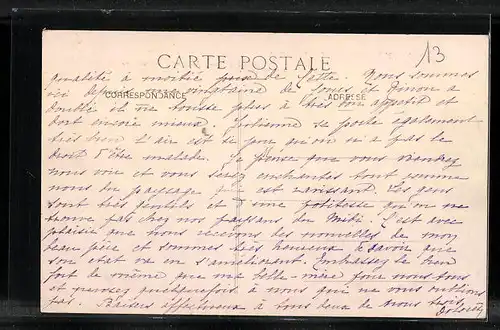 CARTE POSTALE
13
qualité à moitié prix de Cette. Nous sommes
CORRESPONDANCE
ADRESSE
ici depuis vingtaine de jours et Simon a
doublé et ne tousse plus a très bon appétit et
dort encore mieux. Julienne se porte également
très bien l'air est si pur qu'on n'a pas le
droit d'être malade. Je pense que vous viendrez
nous voir et vous serez enchantés tout comme
nous du paysage est ravissant. Les gens
sont très gentils et d'une politesse qu'on ne
trouve pas chez nos paysans du Midi. C'est avec
plaisir que nous recevons des nouvelles de mon
beau père et sommes très heureux de savoir que
son état va en s'améliorant. Embrassez le bien
fort de même que ma belle-mère pour nous tous
et pensez quelquefois à nous qui ne vous oublions
pas. Baisers affectueux à tous deux de nous trois